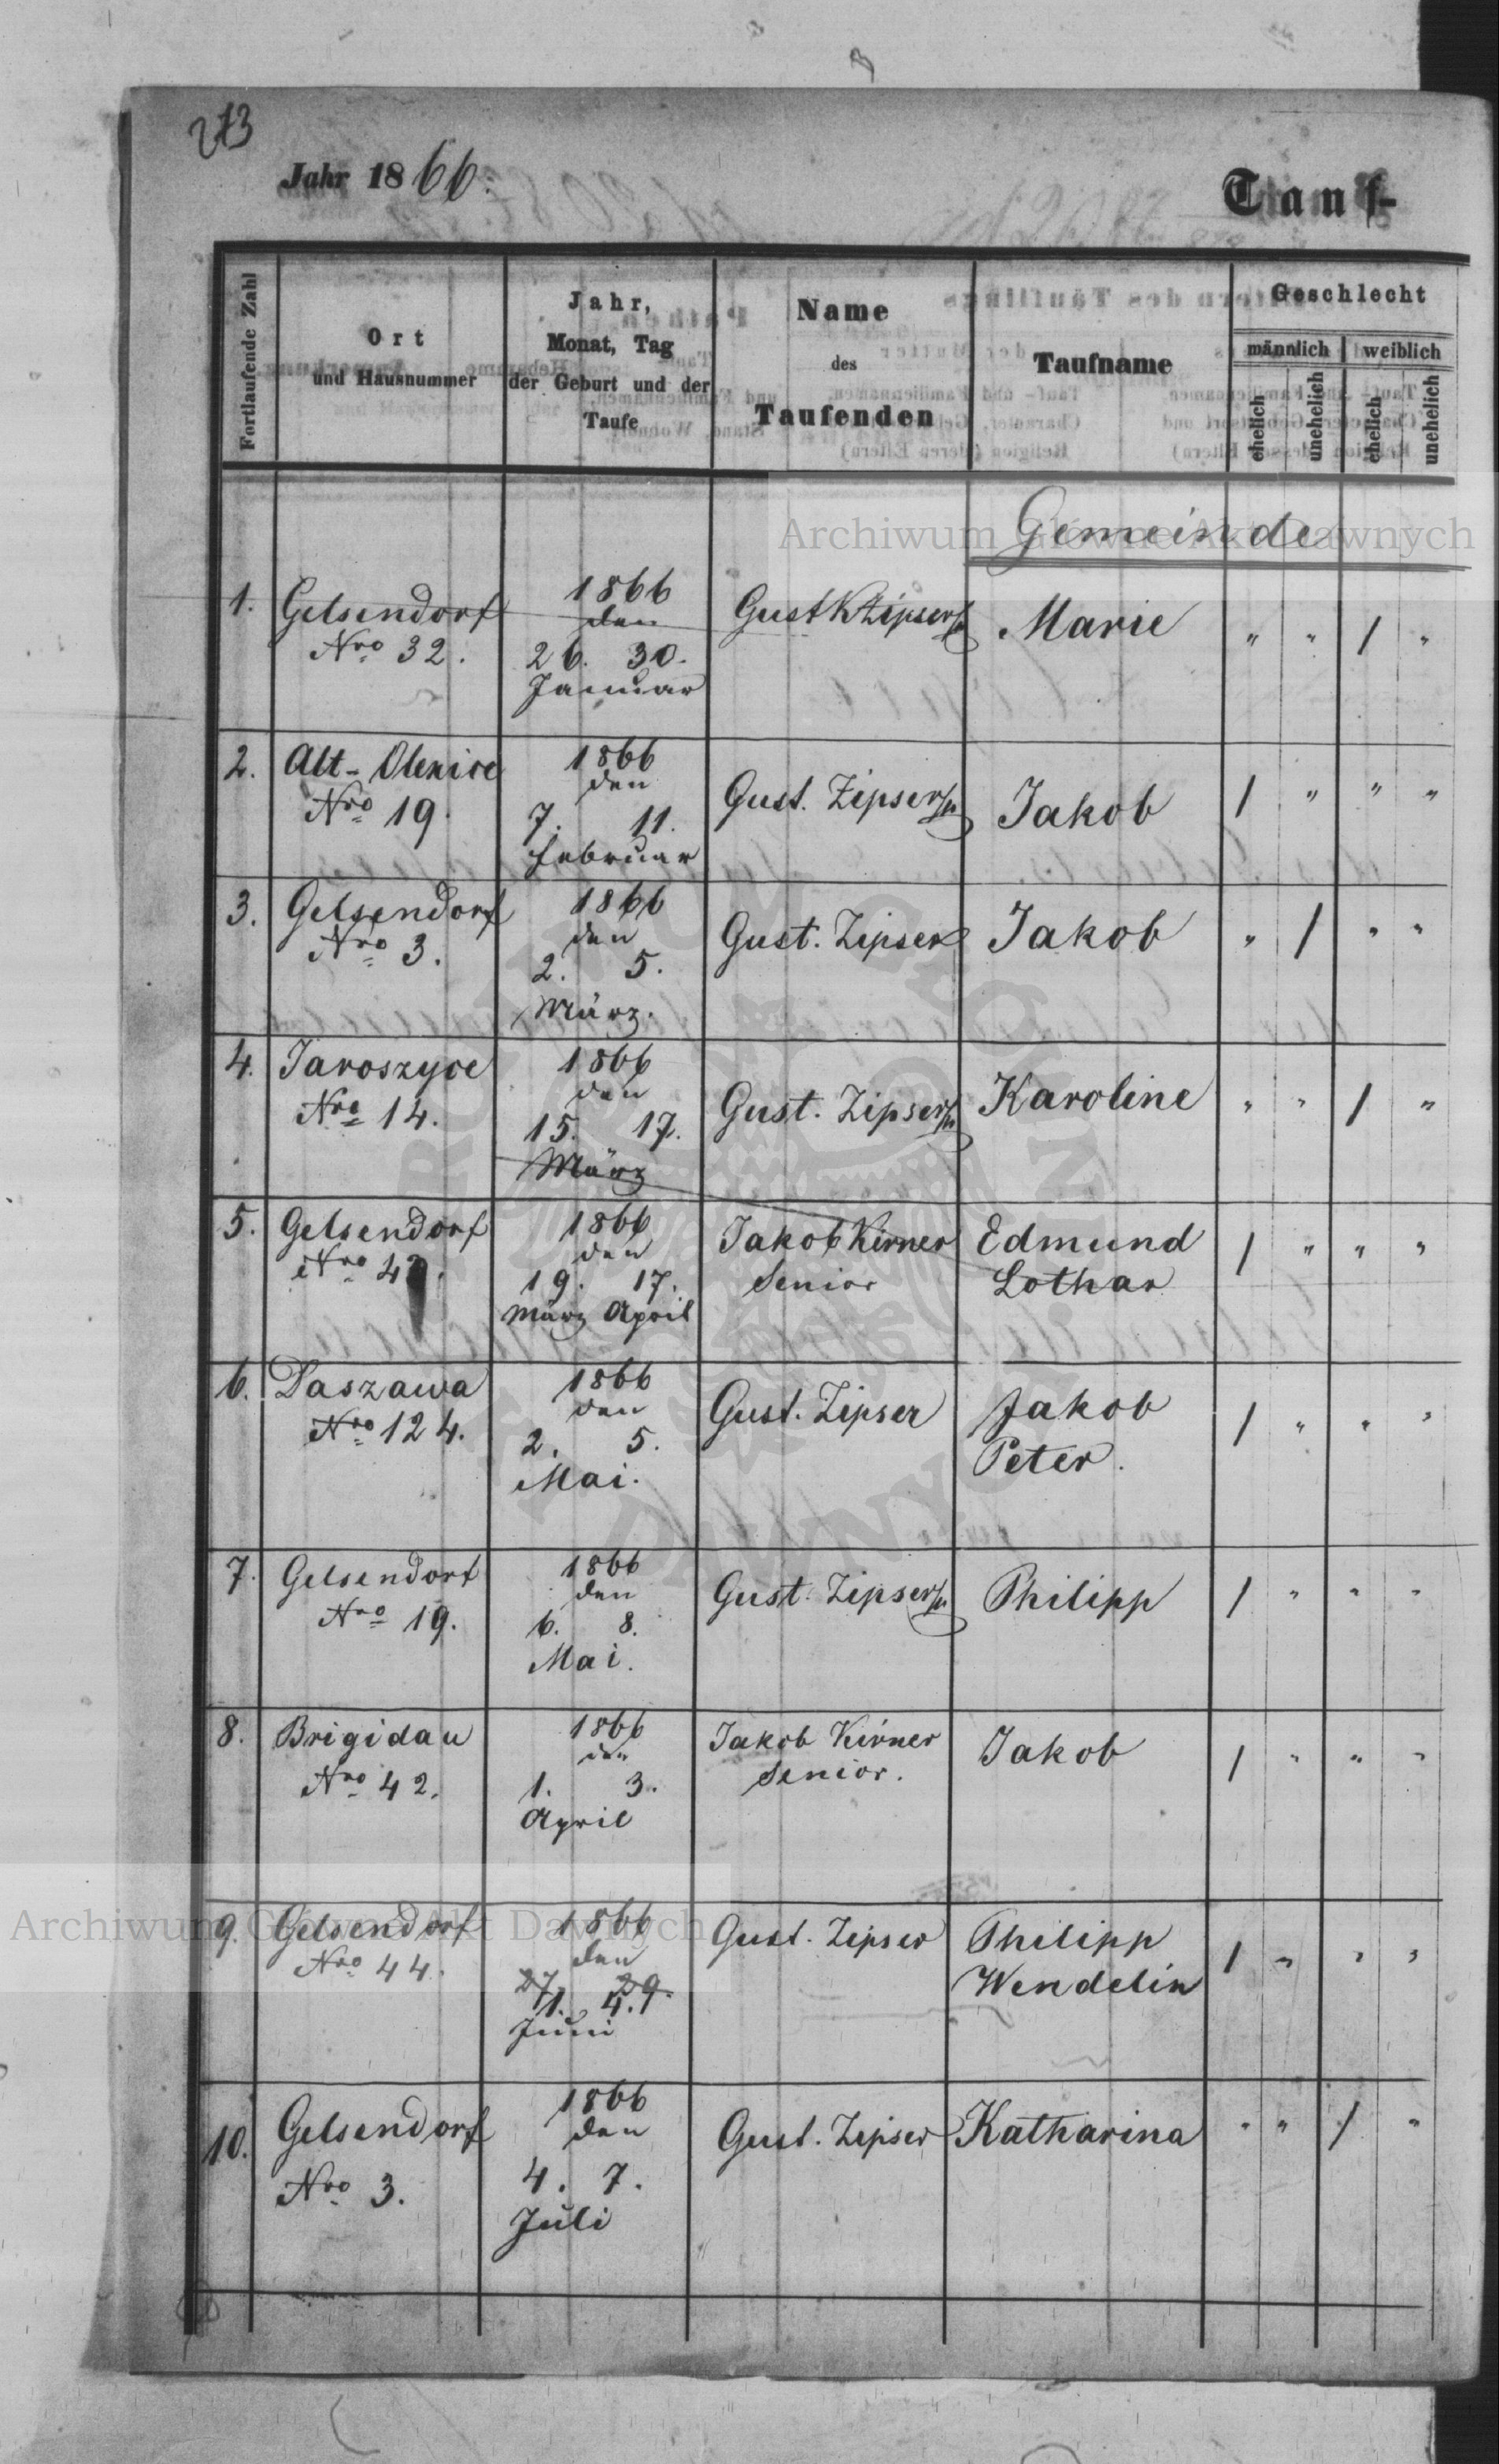 273
Jahr 1866.
Tauf-
Fortlaufende Zahl
Ort
und Hausnummer
Jahr,
Monat, Tag
der Geburt und der
Taufe
Name
des
Taufenden
Taufname
Geschlecht
männlich
weiblich
ehelich
unehelich
ehelich
unehelich
Archiwum Główne Akt Dawnych
Gemeinde
1.
Gelsendorf
Nro 32.
1866
den
26. 30.
Januar
Gust Zipser
Marie
" " / "
2.
Alt-Olexice
Nro 19.
1866
den
7. 11.
Februar
Gust. Zipser
Jakob
/ " " "
3.
Gelsendorf
Nro 3.
1866
den
2. 5.
März.
Gust. Zipser
Jakob
" / " "
4.
Jaroszyce
Nro 14.
1866
den
15. 17.
März
Gust. Zipser
Karoline
" " / "
5.
Gelsendorf
Nro
1866
den
19. 17.
März April
Jakob Kirner
Senior
Edmund
Lothar
/ " " "
6.
Daszawa
Nro 124.
1866
den
2. 5.
Mai.
Gust. Zipser
Jakob
Peter.
/ " " "
7.
Gelsendorf
Nro 19.
1866
den
6. 8.
Mai.
Gust. Zipser
Philipp
/ " " "
8.
Brigidau
Nro 42.
1866
den
1. 3.
April
Jakob Kirner
Senior.
Jakob
/ " " "
Archiwum Główne Akt Dawnych
9.
Gelsendorf
Nro 44.
1866
den
27. 29.
Juni
Gust. Zipser
Philipp
Wendelin
/ " " "
10.
Gelsendorf
Nro 3.
1866
den
4. 7.
Juli
Gust. Zipser
Katharina
" " / "